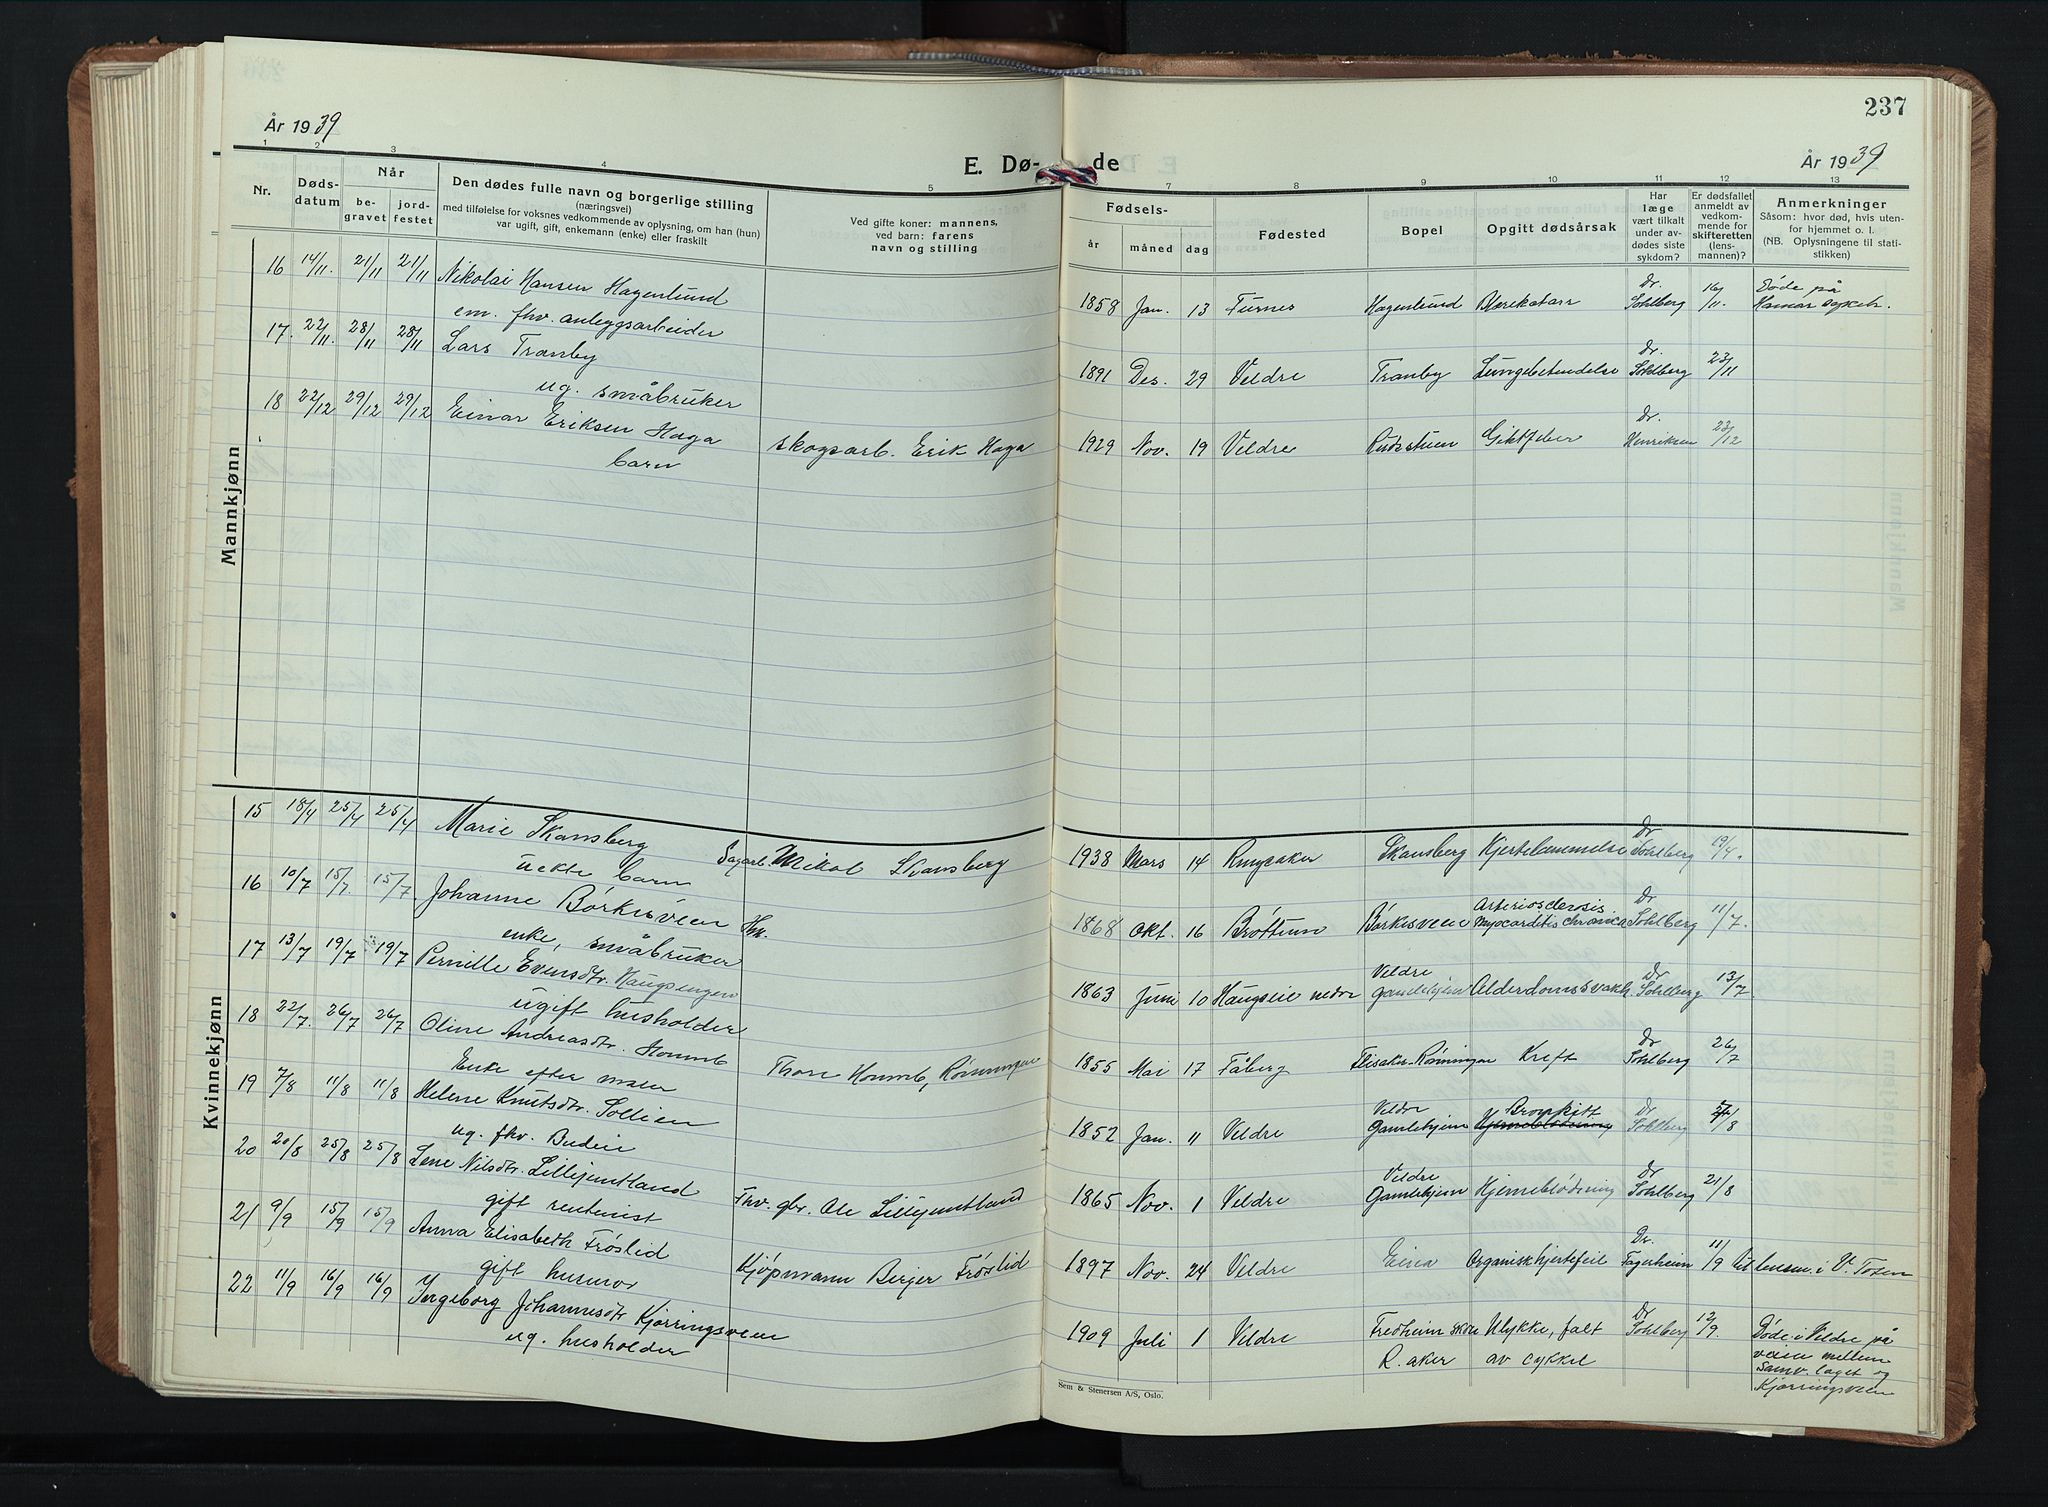 237
År 1939
E. Dø- de
År 1939
1 2 3 4 5 7 8 9 10 11 12 13
Nr.
Døds-
datum
Når
be-
gravet
jord-
festet
Den dødes fulle navn og borgerlige stilling
(næringsvei)
med tilføielse for voksnes vedkommende av oplysning, om han (hun)
var ugift, gift, enkemann (enke) eller fraskilt
Ved gifte koner: mannens,
ved barn: farens
navn og stilling
Fødsels-
år måned dag
Fødested
Bopel
Opgitt dødsårsak
Har
læge
vært tilkalt
under av-
dødes siste
sykdom?
Er dødsfallet
anmeldt av
vedkom-
mende for
skifteretten
(lens-
mannen)?
Anmerkninger
Såsom: hvor død, hvis uten-
for hjemmet o. l.
(NB. Oplysningene til stati-
stikken)
Mannkjønn
16 14/11. 21/11 21/11 Nikolai Hansen Hagenlund
em. fhv. anleggsarbeider
1858 Jan. 13 Furnes Hagenlund Blærekatarr Dr. Sohlberg 16/11. Døde på
Hamar sykeh.
17. 22/11. 28/11 28/11 Lars Tranby
ug. småbruker
1891 Des. 29 Veldre Tranby Lungebetendelse Dr. Sohlberg 23/11
18 22/12 29/12 29/12 Einar Eriksen Haga
barn
skogsarb. Erik Haga
1929 Nov. 19 Veldre Rudsstuen Giktfeber Dr. Henriksen 23/12
Kvinnekjønn
15 18/4 25/4 25/4 Marie Skansberg
uekte barn
Sagarb. Mikal Skansberg
1938 Mars 14 Ringsaker Skansberg Kjertelæmmelse Dr Sohlberg 19/4.
16 10/7 15/7. 15/7. Johanne Børkesveen Hm.
enke, småbruker
1868 Okt. 16 Brøttum Børkesveen Arteriosclerosis.
Myocarditis chronica Dr Sohlberg 11/7.
17 13/7 19/7 19/7 Pernille Evensdtr. Haugsengen
ugift husholder
1863 Juni 10 Haugseie nedre Veldre
Gamlehjem Alderdomssvakh. Dr Sohlberg 13/7
18 22/7. 26/7 26/7 Oline Andreasdtr. Homb
Enke efter maler
Thore Homb, Rønningen
1855 Mai 17 Fåberg Flisaker-Rønningen Kreft Dr Sohlberg 26/7
19 7/8 11/8 11/8 Helene Knutsdtr. Sollien
ug. fhv. Budeie
1852 Jan. 11 Veldre Veldre
Gamlehjem Bronkitt
Hjerneblødning Dr Sohlberg 7/8
20 20/8 25/8 25/8 Lene Nilsdtr. Lillejemtland
gift rentenist
Fhv. gbr. Ole Lillejemtland
1865 Nov. 1 Veldre Veldre
Gamlehjem Hjerneblødning Dr Sohlberg 21/8
21 9/9 15/9 15/9 Anna Elisabeth Frøslid
gift husmor
Kjøpmann Birger Frøslid
1897 Nov. 24 Veldre Eina Organisk hjertefeil Dr. Fagerheim 11/9 til lensm. i V. Toten
22 11/9 16/9 16/9 Ingeborg Johannesdtr Kjørringsveen
ug. husholder
1909 Juli 1 Veldre Fredheim skole
R.aker Ulykke, falt
av cykkel Dr Sohlberg 12/9 Døde i Veldre på
veien mellem
samv. laget og
Kjørringsveen
Sem & Stenersen A/S, Oslo.